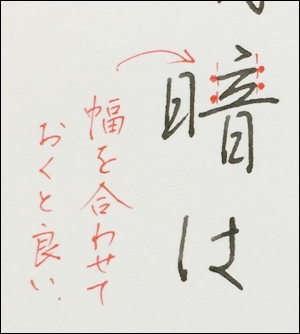 暗は
幅を合わせて
おくと良い.